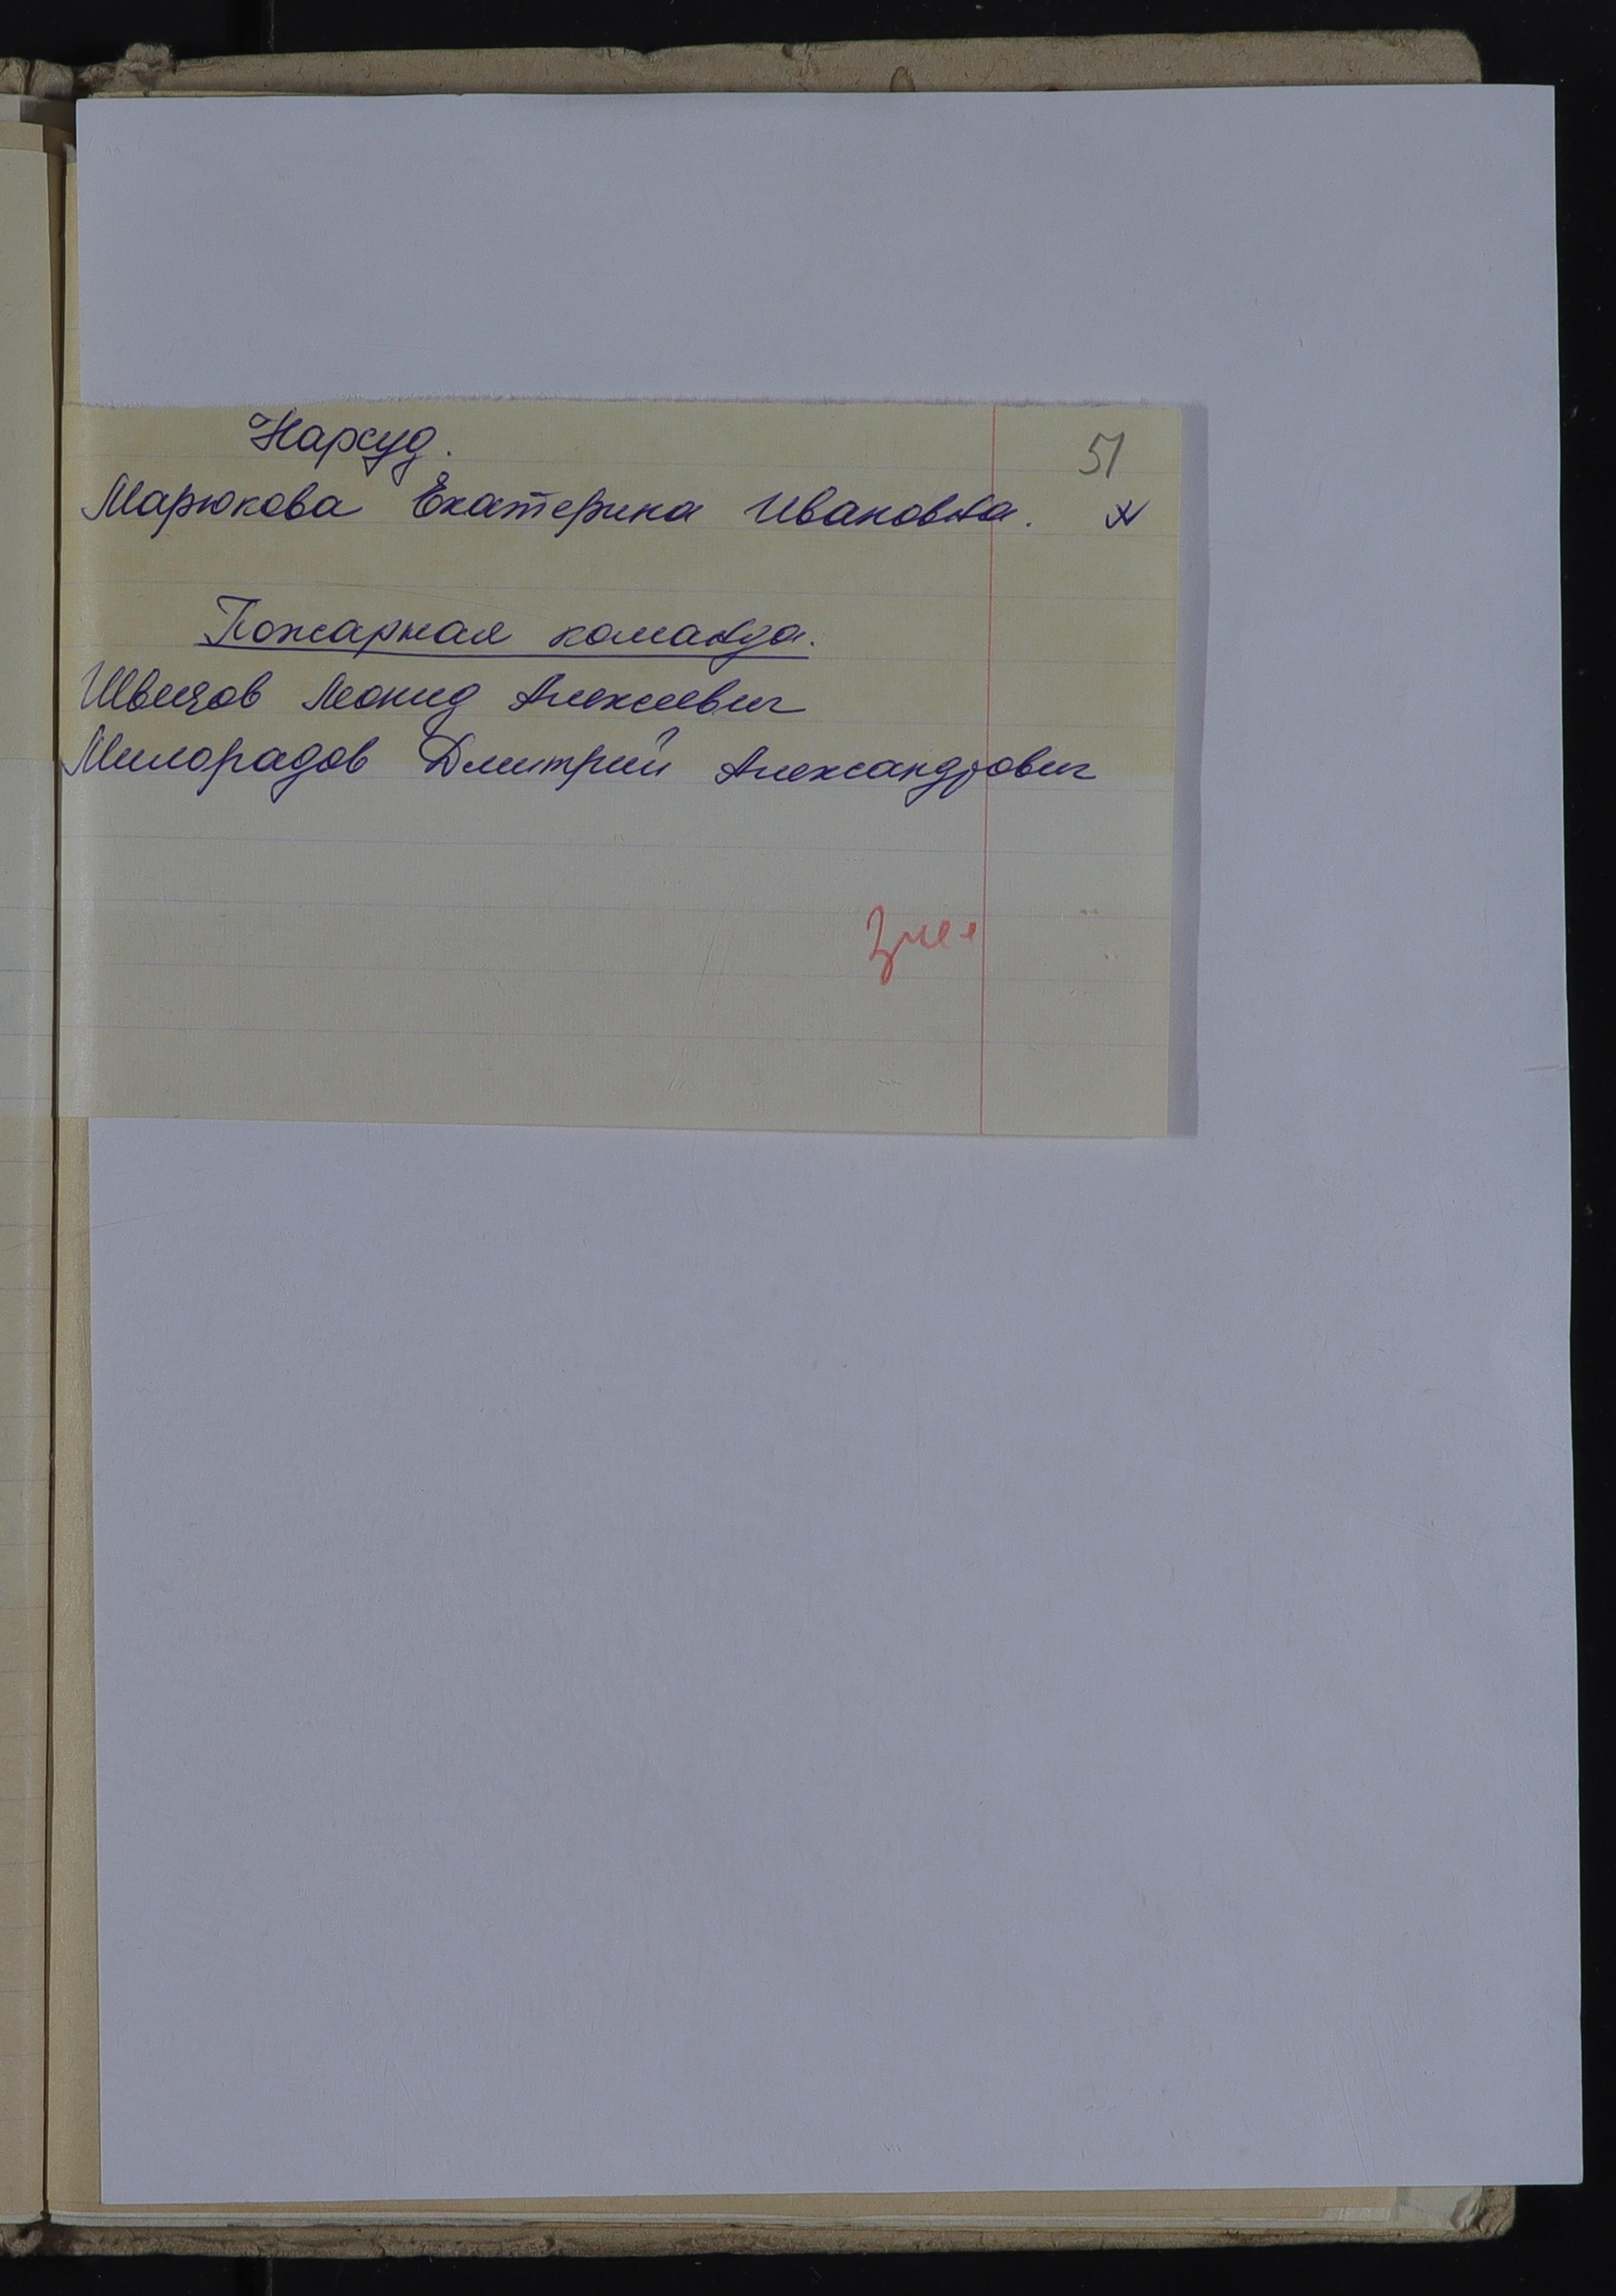 51
Нарсуд.
Марюкова Екатерина Ивановна.
Пожарная команда.
Швецов Леонид Алексеевич
Милорадов Дмитрий Александрович